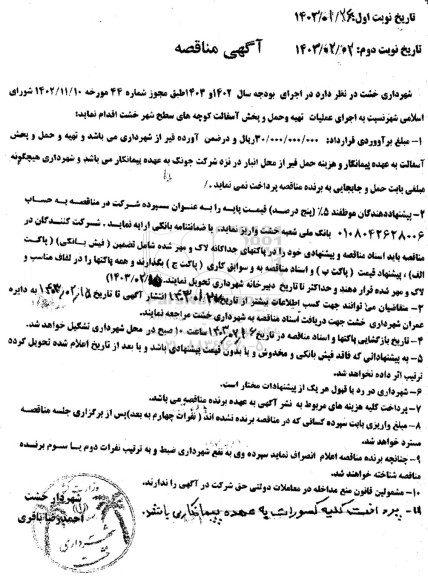 تاریخ نوبت اول: ۱۴۰۳/۰۱/۲۶
آگهی مناقصه
تاریخ نوبت دوم: ۱۴۰۳/۰۲/۰۲
شهرداری خشت در نظر دارد در اجرای بودجه سال ۱۴۰۲و ۱۴۰۳طبق مجوز شماره ۴۴ مورخه ۱۴۰۲/۱۱/۱۰ شورای
اسلامی شهرنسبت به اجرای عملیات تهیه وحمل و پخش آسفالت کوچه های سطح شهر خشت اقدام نماید:
۱- مبلغ برآوردی قرارداد: ۳۰/۰۰۰/۰۰۰/۰۰۰ریال و درضمن آورده قیر از شهرداری می باشد و تهیه و حمل و پخش
آسفالت به عهده پیمانکار و هزینه حمل قیر از محل انبار در نزد شرکت جونک به عهده پیمانکار می باشد و شهرداری هیچگونه
مبلغی بابت حمل و جابجایی به برنده مناقصه پرداخت نمی نماید./
۲- پیشنهاددهندگان موظفند ۵٪ (پنج درصد) قیمت پایه را به عنوان سپرده شرکت در مناقصه به حساب
۰۱۰۸۰۴۲۶۲۸۰۰۶ بانک ملی شعبه خشت واریز نماید. یا ضمانتنامه بانکی ارایه نمایند. شرکت کنندگان در
مناقصه باید اسناد مناقصه و پیشنهادی خود را در پاکتهای جداگانه لاک و مهر شده شامل تضمین ( فیش بانکی) ( پاکت
الف) ، پیشنهاد قیمت ( پاکت ب ) و اسناد مناقصه و سوابق کاری ( پاکت ج ) بگذارند و همه پاکتها را در لفاف مناسب و
لاک و مهر شده قرار دهند و حداکثر تا تاریخ دبیرخانه شهرداری تحویل نمایند. (۱۴۰۳/۰۲/۱۵)
۳- متقاضیان می توانند جهت کسب اطلاعات بیشتر از تاریخ انتشار آگهی تا تاریخ ۱۴۰۳/۰۲/۱۵ به دایره
عمران شهرداری خشت جهت دریافت اسناد مناقصه به شهرداری خشت مراجعه نمایند.
۴- تاریخ بازگشایی پاکتها و اسناد مناقصه در تاریخ ساعت ۱۰ صبح در محل شهرداری تشکیل خواهد شد.
۵- به پیشنهاداتی که فاقد فیش بانکی و مخدوش و یا بدون قیمت پیشنهادی باشد و یا بعد از تاریخ اعلام شده تحویل گردد
ترتیب اثر داده نخواهد شد.
۶- شهرداری در رد یا قبول هر یک از پیشنهادات مختار است.
۷- پرداخت کلیه هزینه های مربوط به نشر آگهی به عهده برنده مناقصه می باشد.
۸- مبلغ واریزی بابت سپرده کسانی که در مناقصه برنده نشده اند ( نفرات چهارم به بعد)پس از برگزاری جلسه مناقصه
مسترد خواهد شد.
۹- چنانچه برنده مناقصه اعلام انصراف نماید سپرده وی به نفع شهرداری ضبط و به ترتیب نفرات دوم یا سوم برنده
مناقصه شناخته خواهند شد.
۱۰- مشمولین قانون منع مداخله در معاملات دولتی حق شرکت در آگهی را ندارند.
۱۱- پرداخت کلیه کسورات به عهده پیمانکاری باشد.
شهردار خشت
احمدرضا باقری